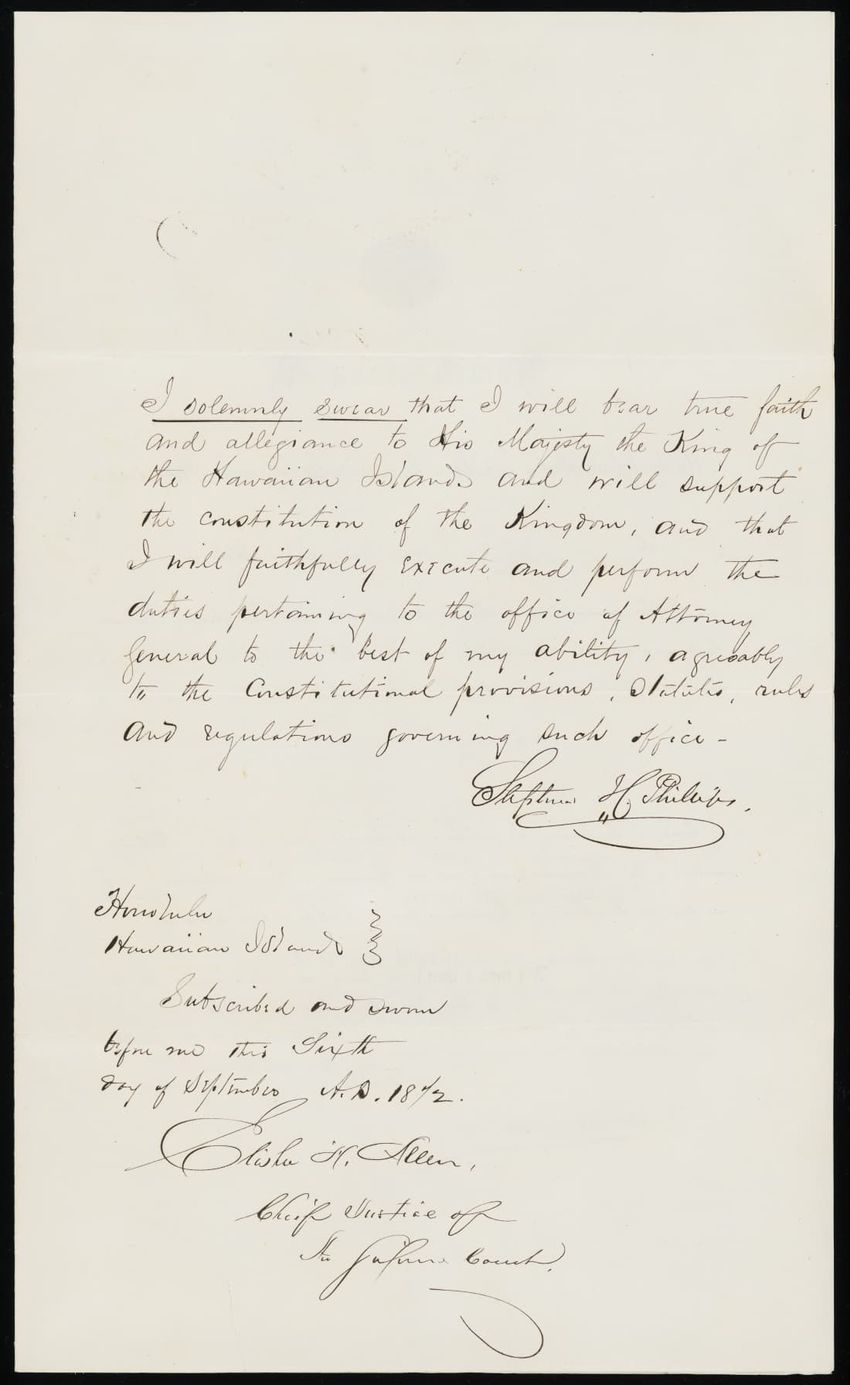 I solemnly swear that I will bear true faith
and allegiance to His Majesty the King of
the Hawaiian Islands and will support
the constitution of the Kingdom, and that
I will faithfully execute and perform the
duties pertaining to the office of Attorney
General to the best of my ability, agreeably
to the Constitutional provisions, Statutes, rules
and regulations governing such office -
Stephen H. Phillips.
Honolulu
Hawaiian Islands
Subscribed and sworn
before me this Sixth
day of September A.D. 1872.
Elisha H. Allen,
Chief Justice of
the Supreme Court.